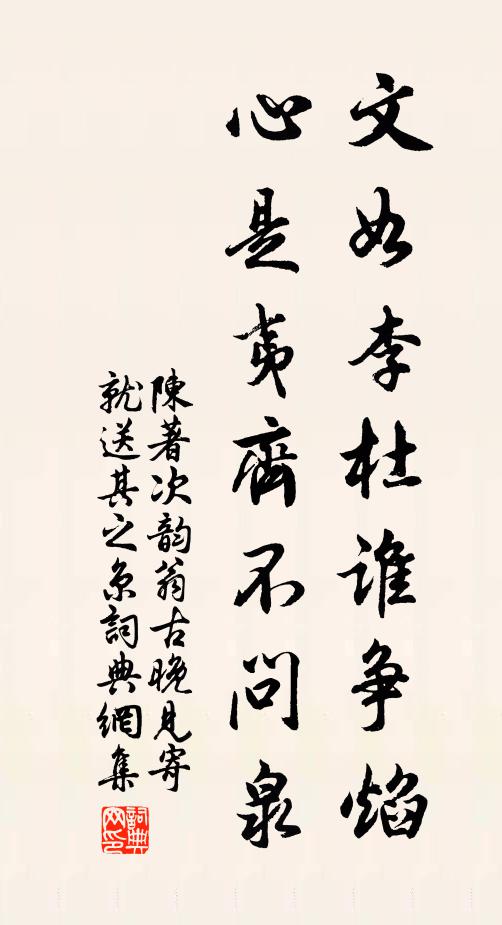 文如李杜谁争焰
心是夷齊不问泉
陳著次韵翁古晚见寄
就送其之京詞典網集
詞典
网印